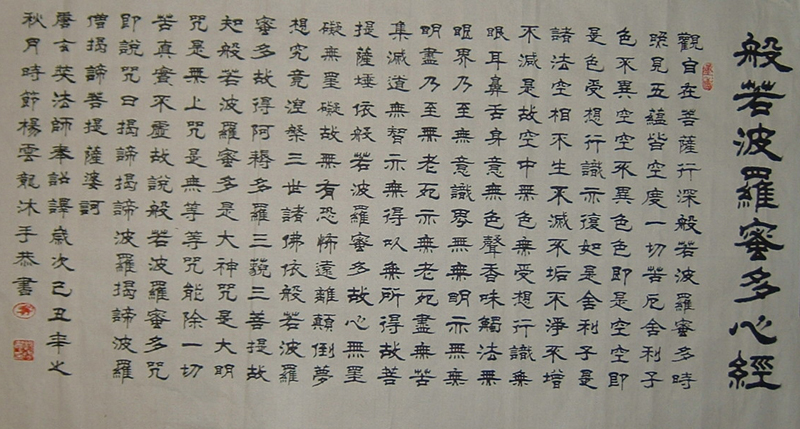 般若波羅蜜多心經
觀自在菩薩行深般若波羅蜜多時
照見五蘊皆空度一切苦厄舍利子
色不異空空不異色色即是空空即
是色受想行識亦復如是舍利子是
諸法空相不生不滅不垢不淨不增
不減是故空中無色無受想行識無
眼耳鼻舌身意無色聲香味觸法無
眼界乃至無意識界無無明亦無無
明盡乃至無老死亦無老死盡無苦
集滅道無智亦無得以無所得故菩
提薩埵依般若波羅蜜多故心無罣
礙無罣礙故無有恐怖遠離顛倒夢
想究竟涅槃三世諸佛依般若波羅
蜜多故得阿耨多羅三藐三菩提故
知般若波羅蜜多是大神咒是大明
咒是無上咒是無等等咒能除一切
苦真實不虛故說般若波羅蜜多咒
即說咒曰揭諦揭諦波羅揭諦波羅
僧揭諦菩提薩婆訶
唐玄奘法師奉詔譯歲次己丑年之
秋月時節楊雲龍沐手恭書